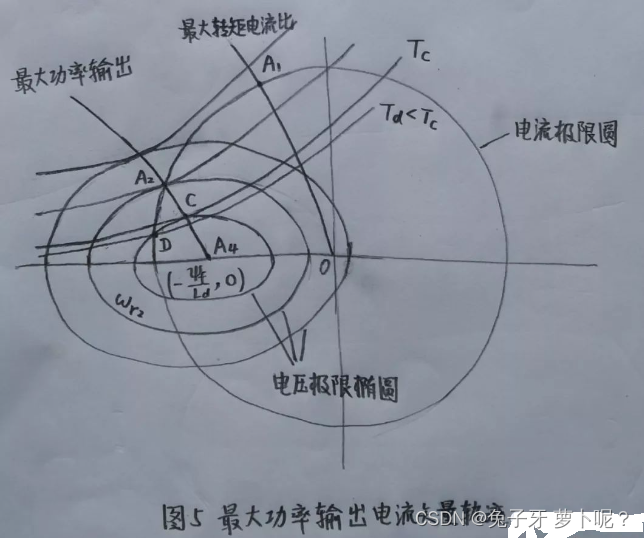 最大转矩电流比
A₁
Tc
最大功率输出
Td<Tc
电流极限圆
A₂
C
D
A₄
O
(-Ψf/Ld, 0)
ωr₂
电压极限椭圆
图5 最大功率输出电流
CSDN @兔子牙 萝卜呢?